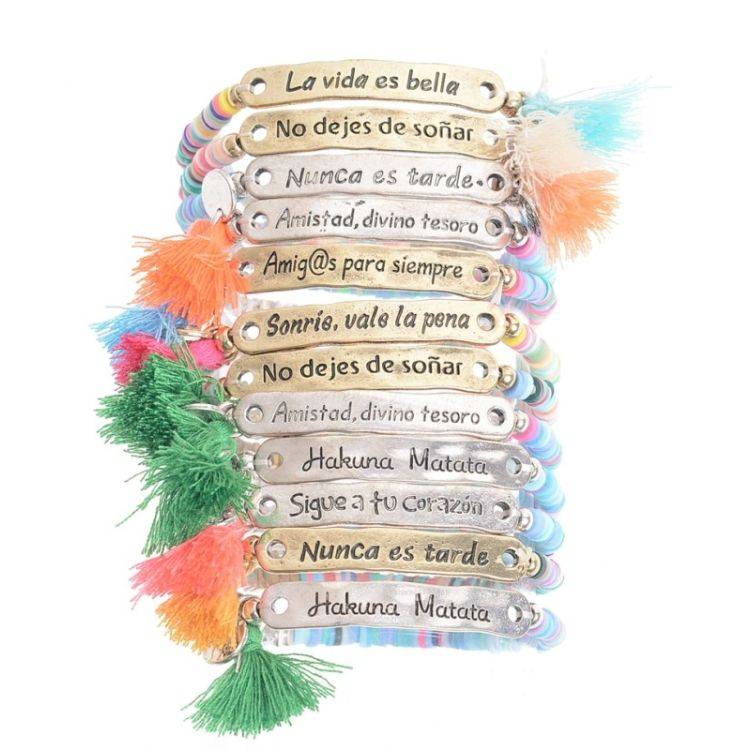 La vida es bella
No dejes de soñar
Nunca es tarde.
Amistad, divino tesoro
Amig@s para siempre
Sonríe, vale la pena
No dejes de soñar
Amistad, divino tesoro
Hakuna Matata
Sigue a tu corazón
Nunca es tarde
Hakuna Matata